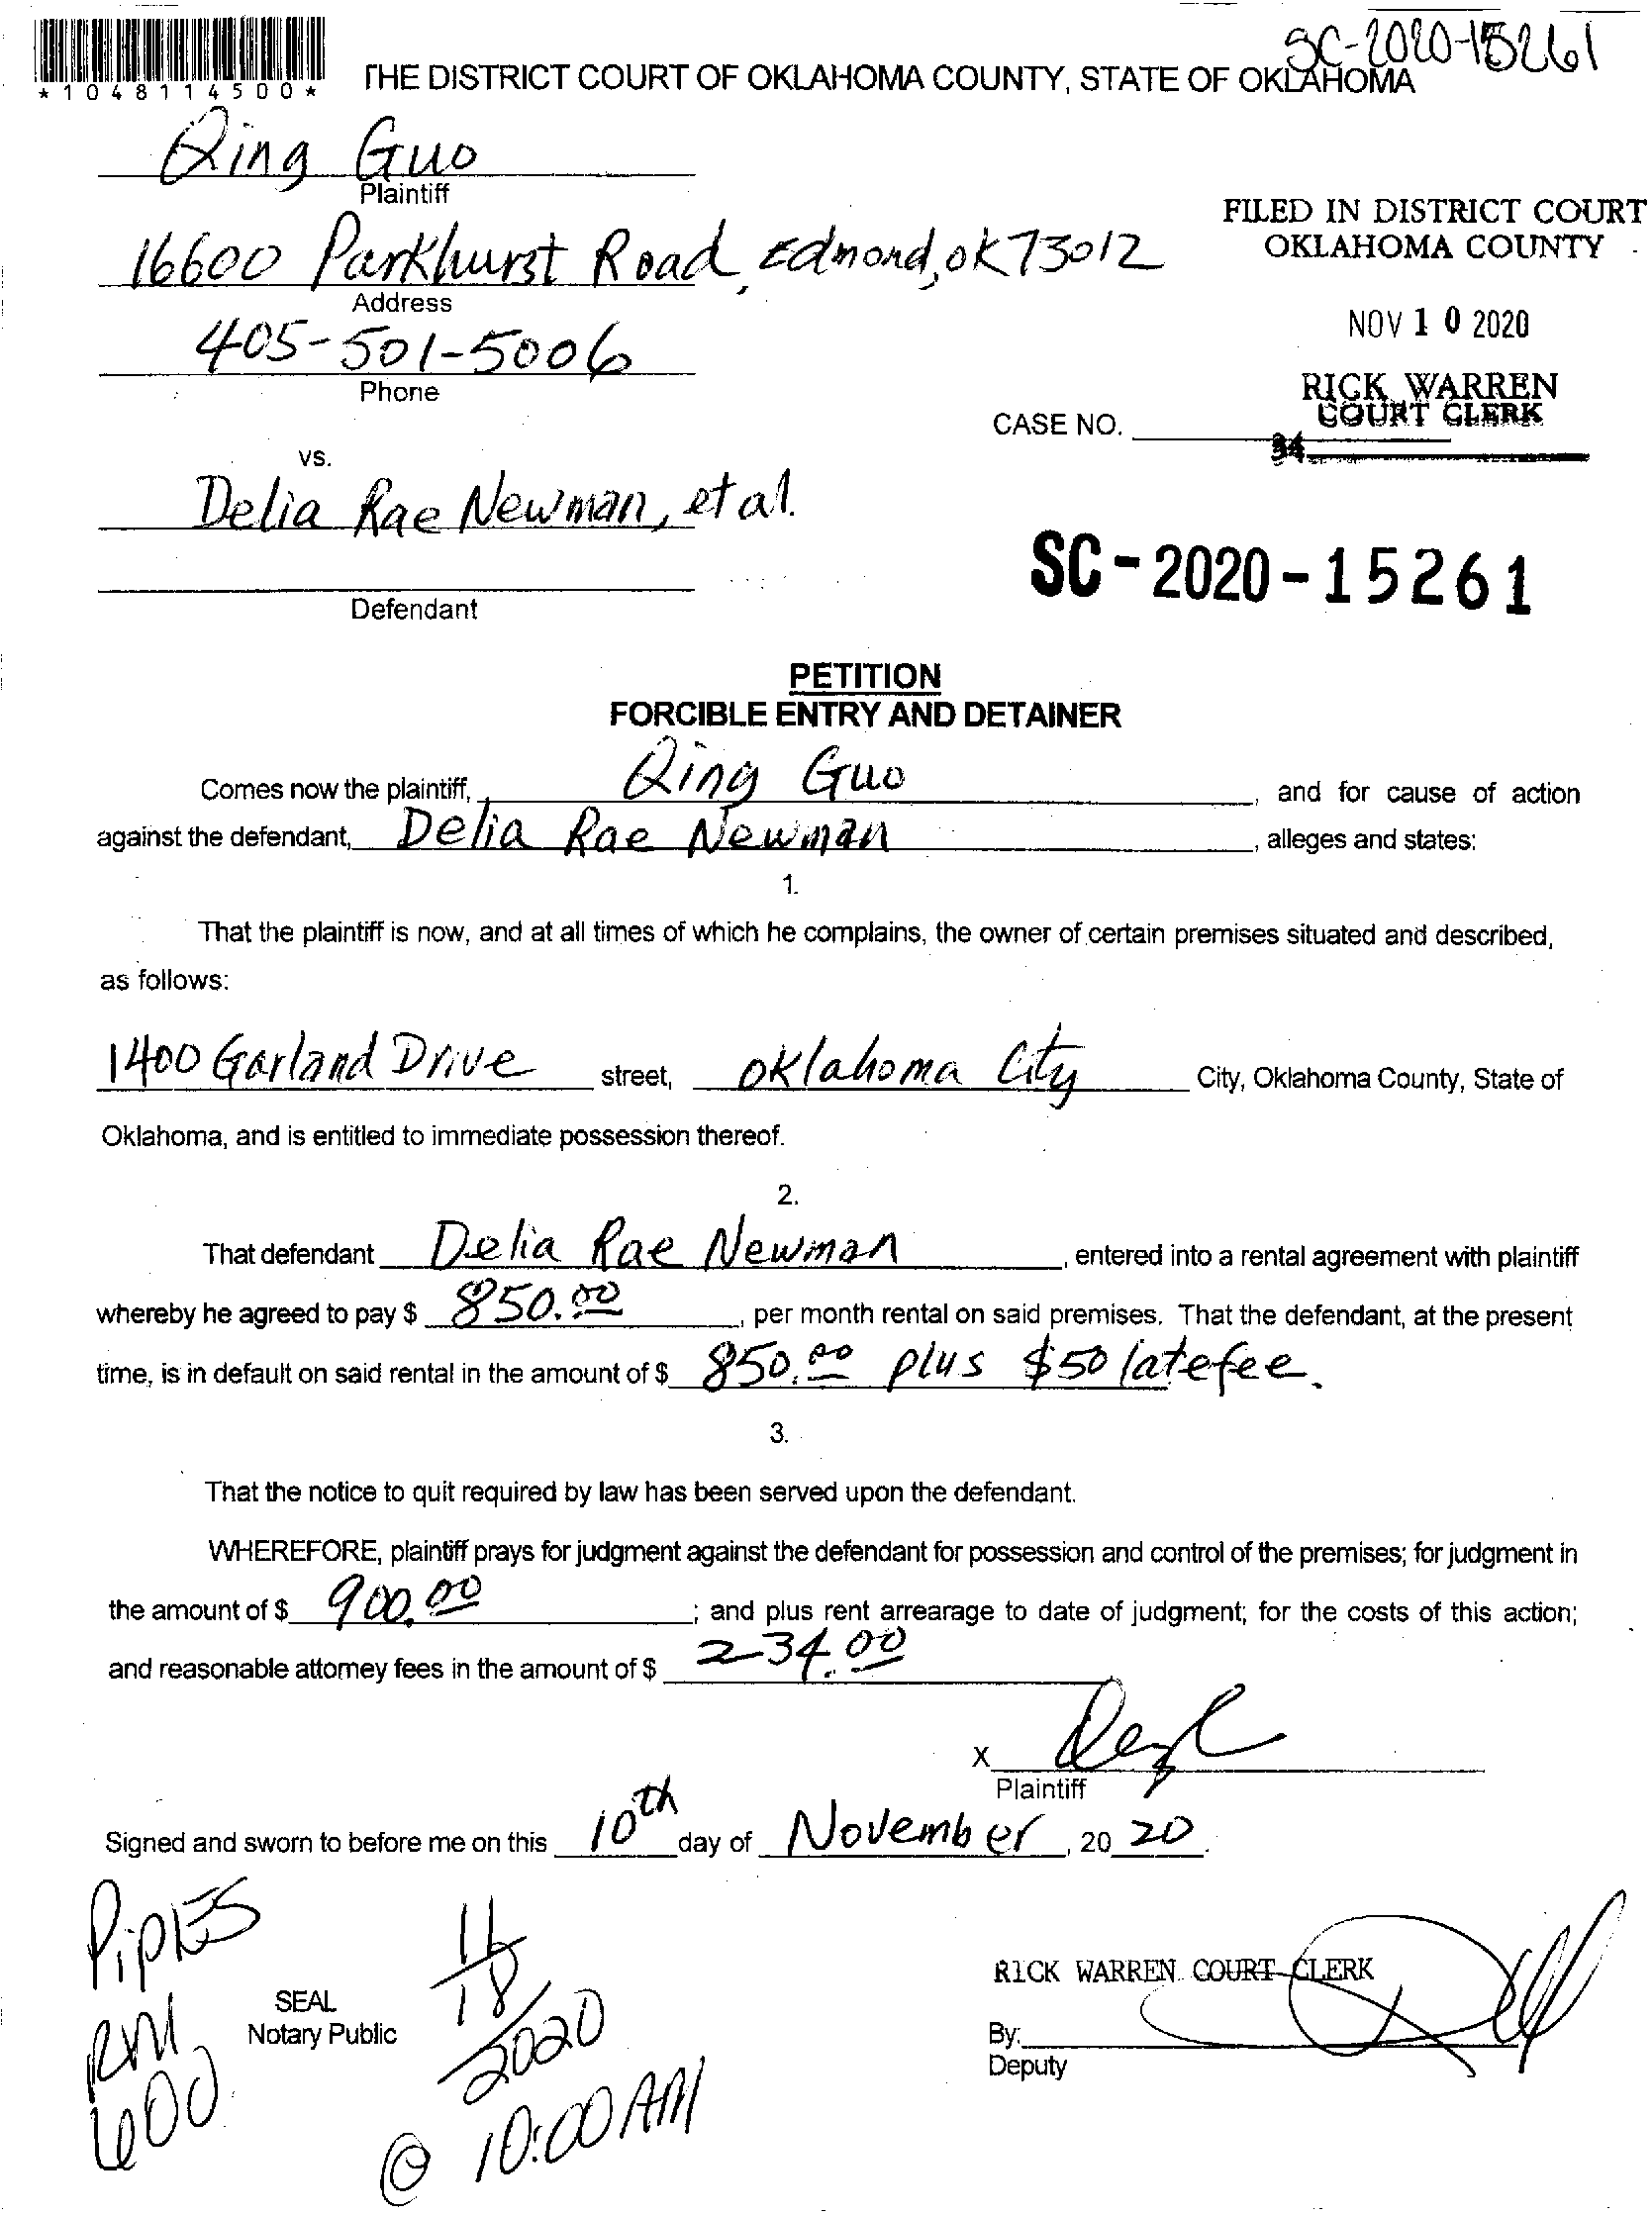 SC-2020-15261
*1048114500*
THE DISTRICT COURT OF OKLAHOMA COUNTY, STATE OF OKLAHOMA
Qing Guo
Plaintiff
16600 Parkhurst Road, Edmond, OK 73012
Address
405-501-5006
Phone
FILED IN DISTRICT COURT
OKLAHOMA COUNTY
NOV 10 2020
RICK WARREN
COURT CLERK
CASE NO.
34
vs.
Delia Rae Newman, et al.
SC-2020-15261
Defendant
PETITION
FORCIBLE ENTRY AND DETAINER
Comes now the plaintiff, Qing Guo, and for cause of action
against the defendant, Delia Rae Newman, alleges and states:
1.
That the plaintiff is now, and at all times of which he complains, the owner of certain premises situated and described,
as follows:
1400 Garland Drive street, Oklahoma City City, Oklahoma County, State of
Oklahoma, and is entitled to immediate possession thereof.
2.
That defendant Delia Rae Newman, entered into a rental agreement with plaintiff
whereby he agreed to pay $ 850.00, per month rental on said premises. That the defendant, at the present
time, is in default on said rental in the amount of $ 850.00 plus $50 latefee.
3.
That the notice to quit required by law has been served upon the defendant.
WHEREFORE, plaintiff prays for judgment against the defendant for possession and control of the premises; for judgment in
the amount of $ 900.00; and plus rent arrearage to date of judgment; for the costs of this action;
and reasonable attorney fees in the amount of $ 234.00
X
Plaintiff
Signed and sworn to before me on this 10th day of November, 20 20.
PiplES
RM
600
SEAL
Notary Public
11/18/2020
@ 10:00 AM
RICK WARREN COURT CLERK
By:
Deputy